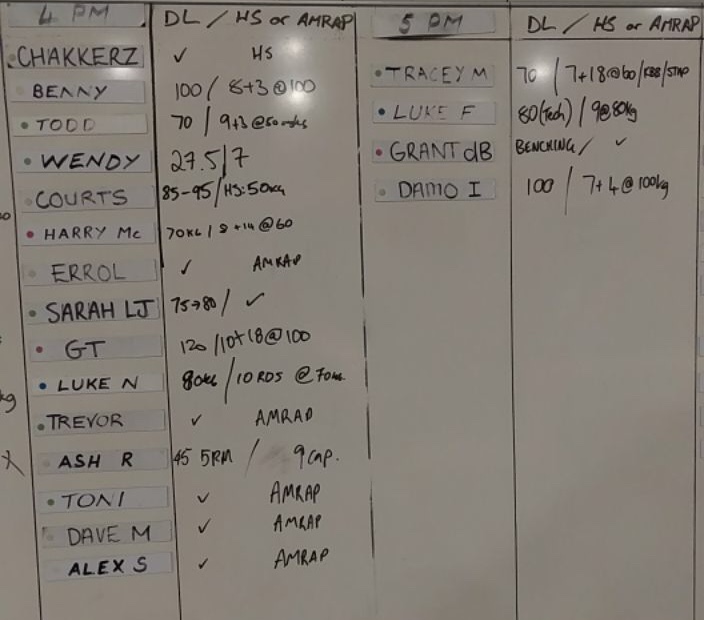 4 PM DL / HS or AMRAP
CHAKKERZ ✓ HS
BENNY 100 / 8+3 @ 100
TODD 70 / 9+3 @
WENDY 27.5 / 7
COURTS 85-95 / HS: 50kg
HARRY Mc 70KG / 8 +14 @ 60
ERROL ✓ AMRAP
SARAH LJ 75→80 / ✓
GT 120 / 10+18 @ 100
LUKE N 80KG / 10 RDS @ 70KG
TREVOR ✓ AMRAP
ASH R 45 5RM / 9 cap.
TONI ✓ AMRAP
DAVE M ✓ AMRAP
ALEX S ✓ AMRAP
5 PM DL / HS or AMRAP
TRACEY M 70 / 7+18 @ 60 /
LUKE F 80(Tech) / 9 @ 80kg
GRANT dB BENCHING / ✓
DAMO I 100 / 7+4 @ 100kg